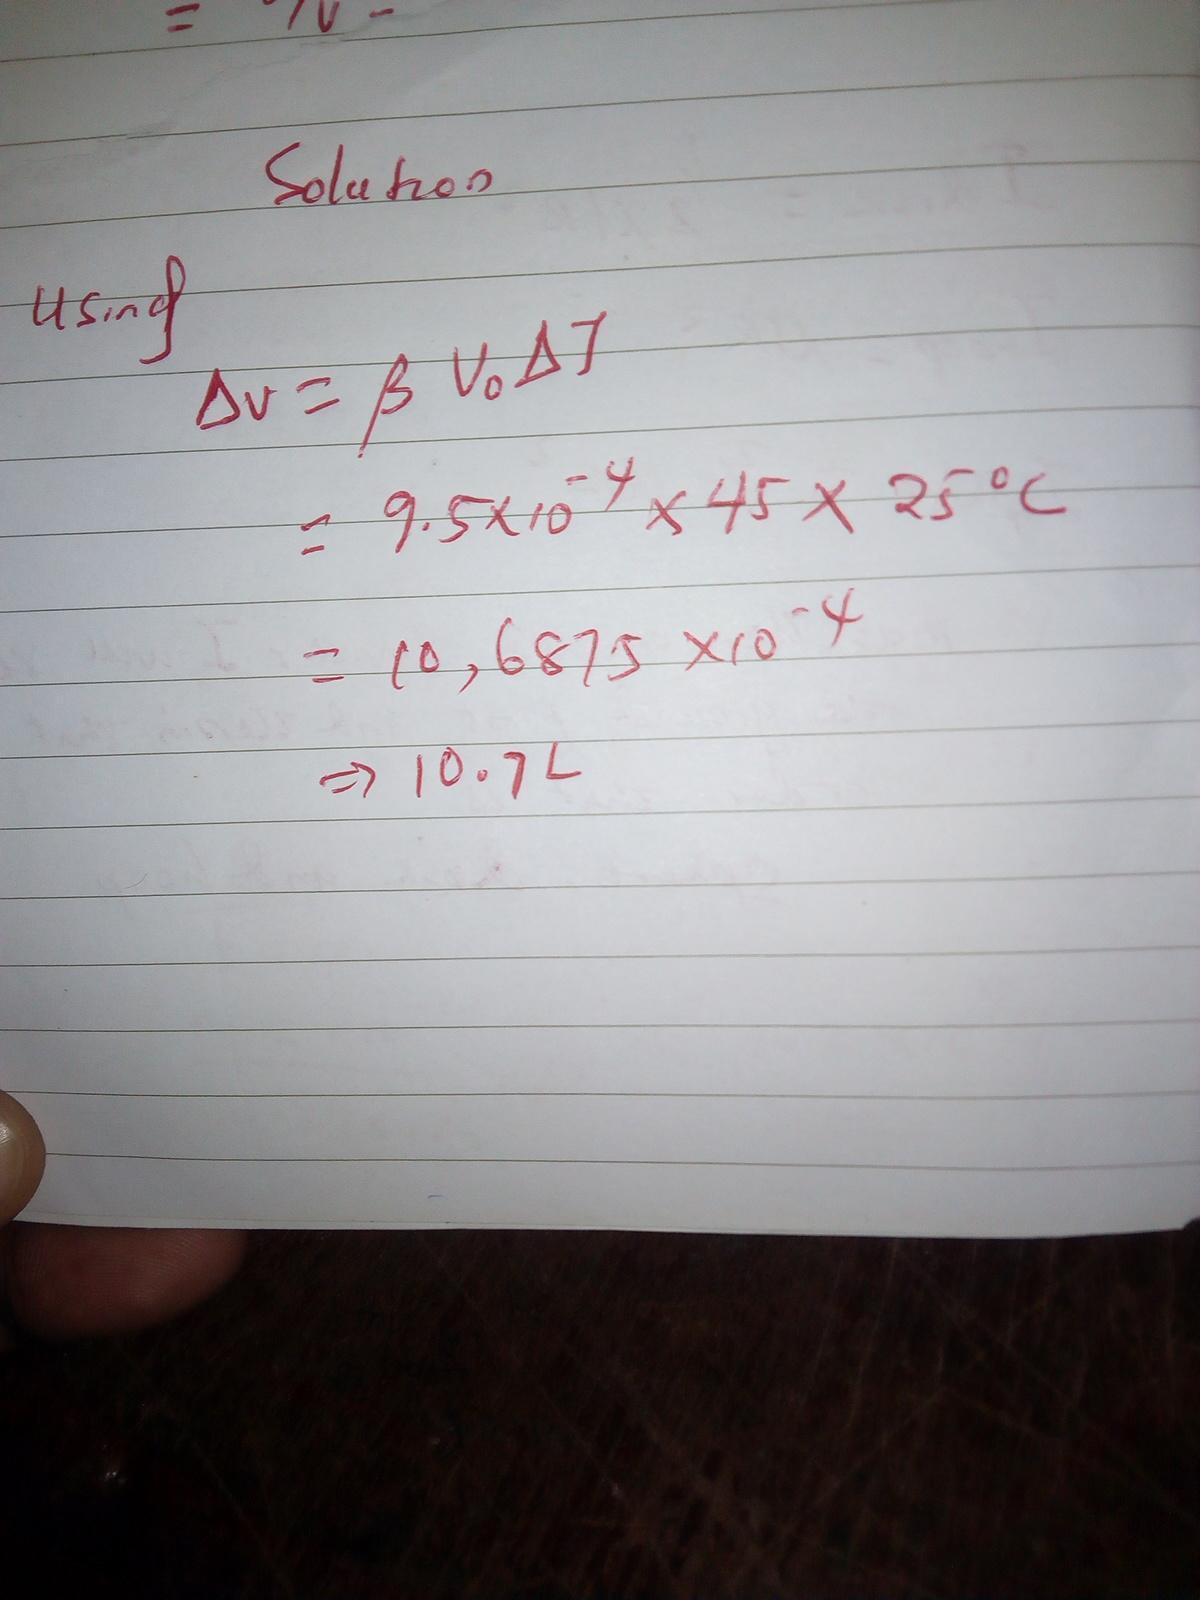 Solution
Using
Δv = β V₀ ΔT
= 9.5×10⁻⁴ × 45 × 25°C
= 10,6875 ×10⁻⁴
⇒ 10.7L